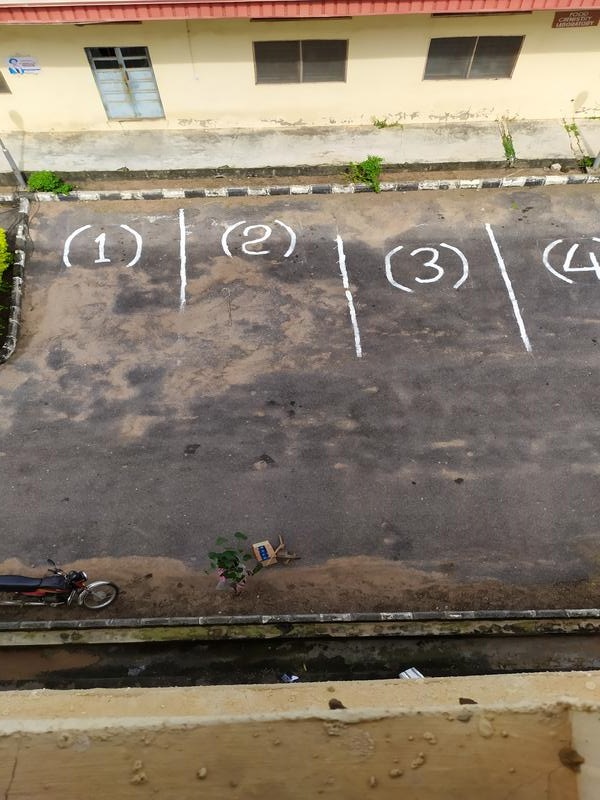 FOOD
CHEMISTRY
LABORATORY
(1)
(2)
(3)
(4